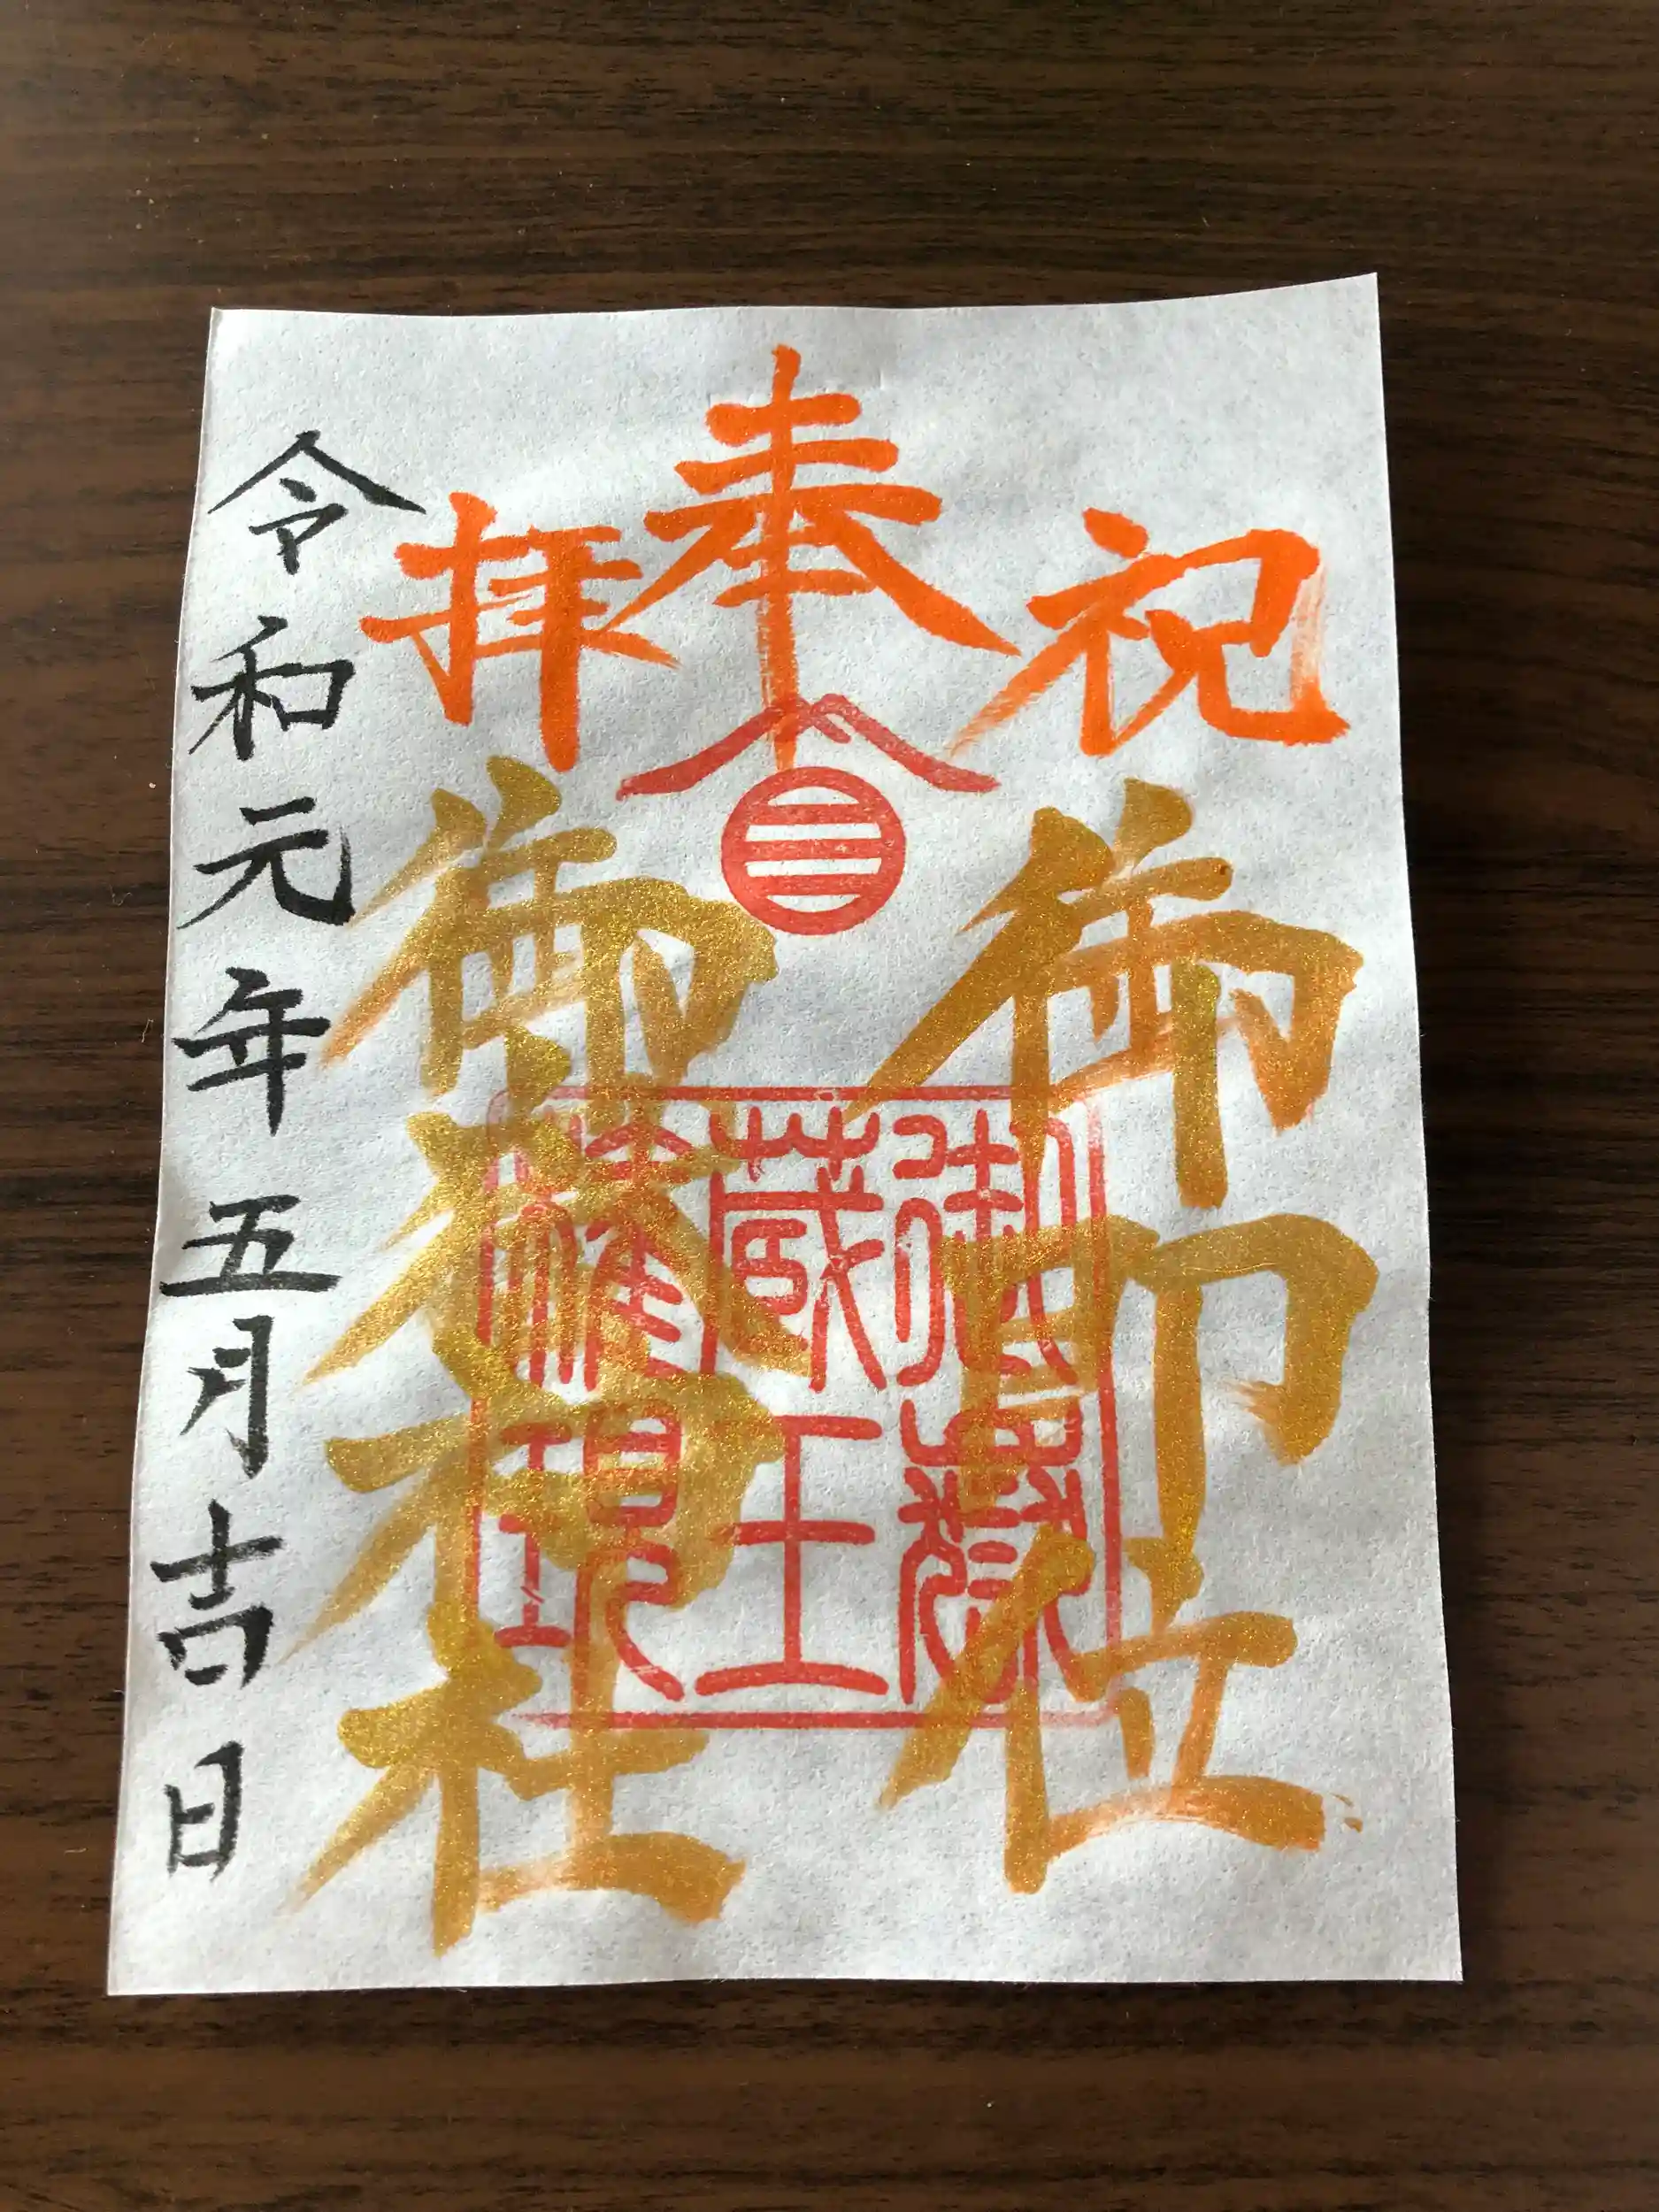 祝
奉拝
御即位
御嶽
蔵王
権現
御嶽神社
令和元年五月吉日